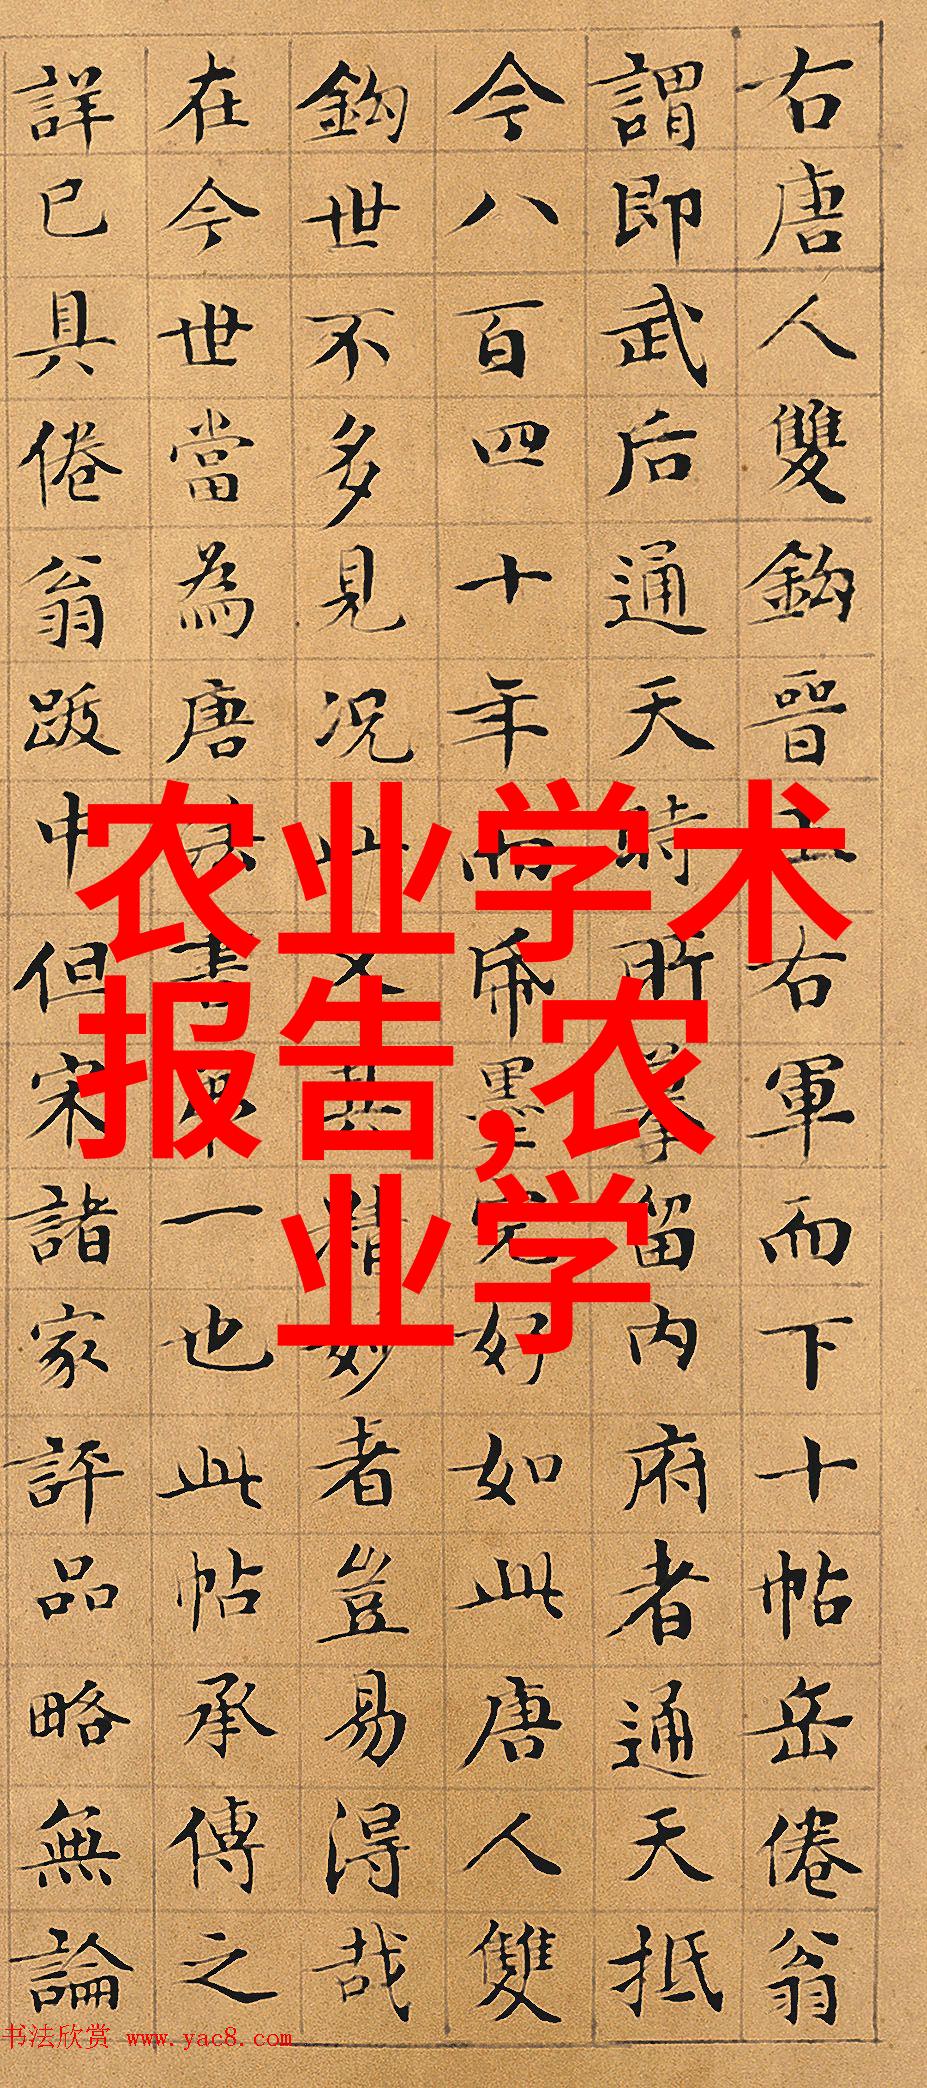 右唐人雙鈎晉王右軍而下十帖岳倦翁
謂即武后通天時所摹留内府者通天抵
今八百四十年而帋墨完好如此唐人雙
鈎世不多見况此又其精妙者豈易得哉
在今世當為唐法書第一也此帖承傳之
詳已具倦翁跋中但宋諸家評品略無論
农业学术
报告,农
业学
书法欣赏 www.yac8.com